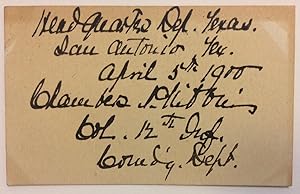 Head Quarters Dep. Texas.
San Antonio Tex.
April 5th 1900
Chambers McKibbin
Col. 12th Inf.
Comd'g. Dept.